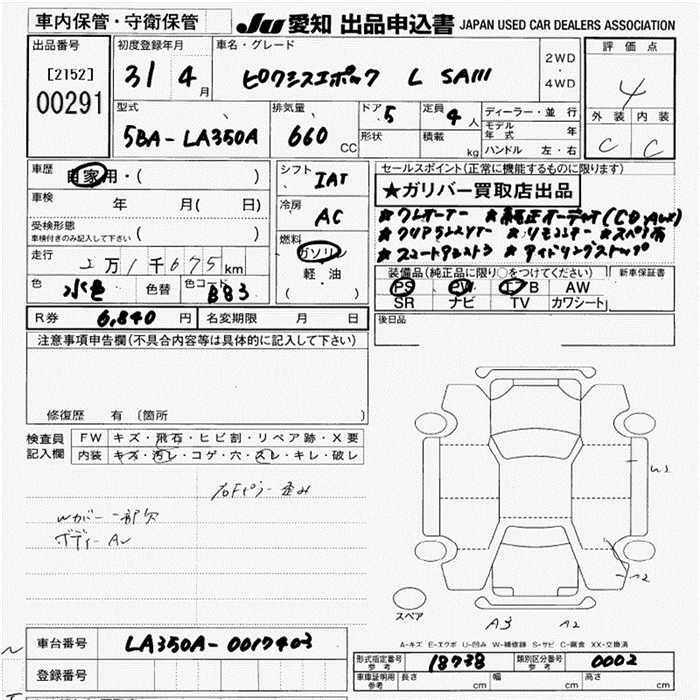 車内保管・守衛保管
JU 愛知 出品申込書 JAPAN USED CAR DEALERS ASSOCIATION
出品番号
[2152]
00291
初度登録年月
31 4月
車名・グレード
ピクシスエポック L SAIII
2WD
・
4WD
評価点
4
外装 内装
C C
型式
5BA-LA350A
排気量
660 CC
ドア 5
形状
定員 4人
積載 kg
ディーラー・並行
モデル年式 年
ハンドル 左・右
車歴
自家用・( )
車検 年 月( 日)
受検形態
車検付きのみ記入して下さい ( )
走行 2万1千675km
色 水色 色替 色コード B83
シフト IAT
冷房 AC
燃料
ガソリン
軽・油
( )
セールスポイント(正常に機能するものに限ります)
★ガリバー買取店出品
★ワンオーナー ★純正オーディオ(CD,AUX)
★クリアランスソナー ★リモコンキー ★スペア有
★スマートアシスト3 ★アイドリングストップ
装備品(純正品に限り○をつけてください) 新車保証書
PS PW エアB AW
SR ナビ TV カワシート
後日品
R券 6,840円 名変期限 月 日
注意事項申告欄(不具合内容等は具体的に記入して下さい)
修復歴 有 〔箇所
検査員記入欄
FW キズ・飛石・ヒビ割・リペア跡・X要
内装 キズ・汚レ・コゲ・穴・スレ・キレ・破レ
右Fピラー歪み
Wカバー一部欠
ボディーAU
スペア
A3 A2
A-キズ E-エクボ U-凹み W-補修跡 S-サビ C-腐食 XX-交換済
車台番号 LA350A-0017403
登録番号
形式指定番号 参考 18738
類別区分番号 参考 0002
車庫証明用 参考 長さ cm 幅 cm 高さ cm